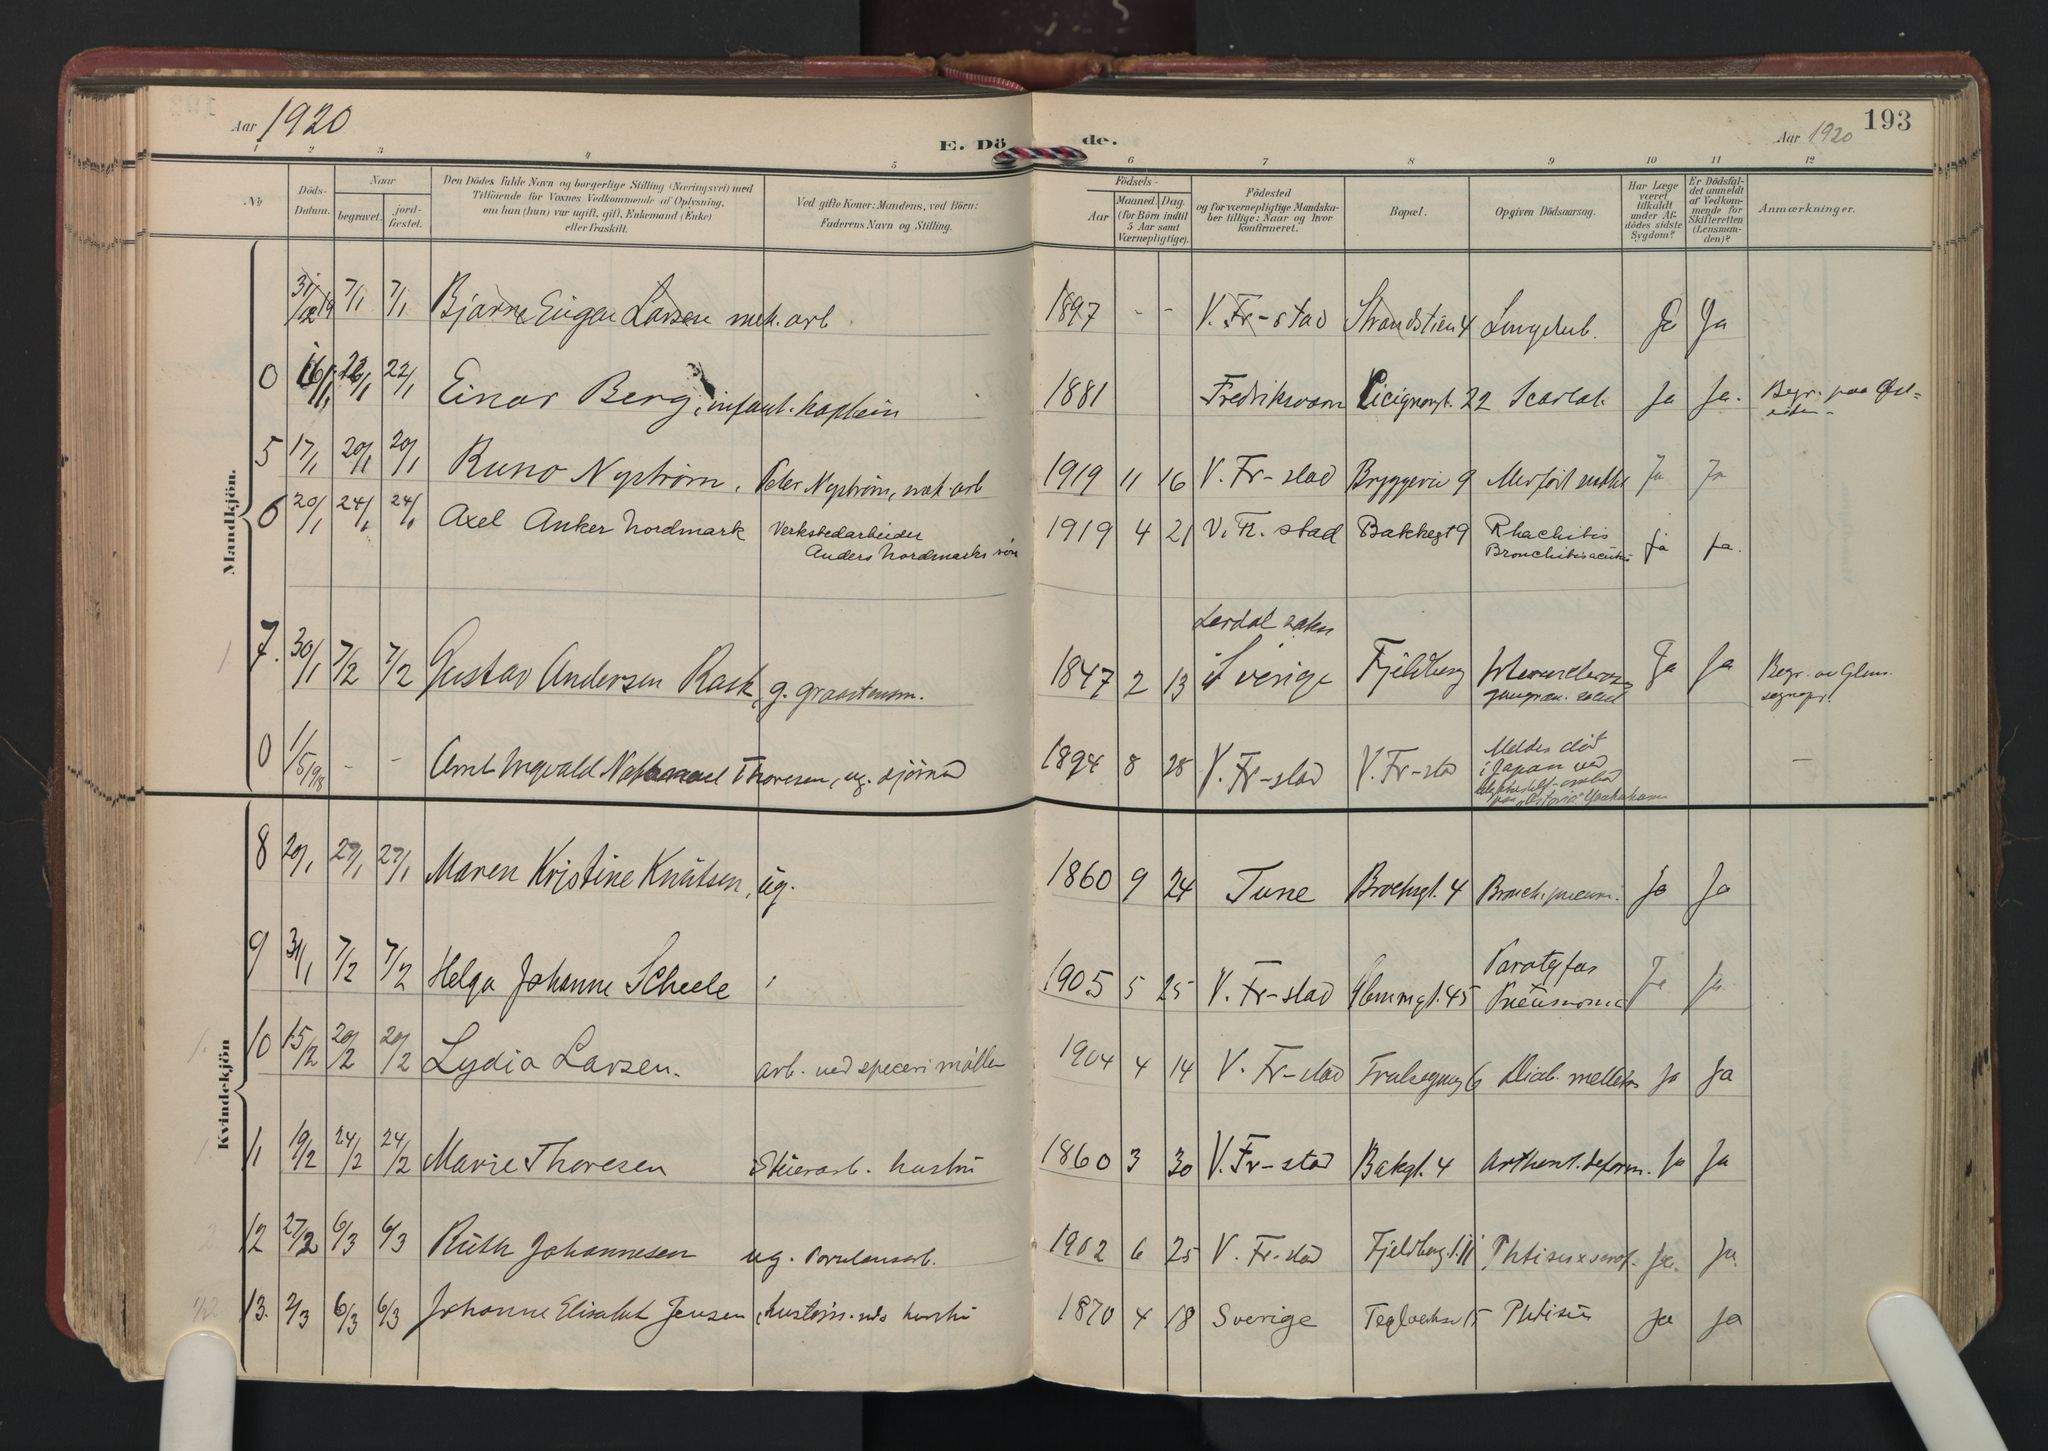 Aar 1920
E. Dö de.
193
Aar 1920
1 2 3 4 5 6 7 8 9 10 11 12
No
Döds-Datum.
Naar
begravet.
jord-fæstet.
Den Dödes fulde Navn og borgerlige Stilling (Næringsvei) med
Tilföiende for Voxnes Vedkommende af Oplysning,
om han (hun) var ugift, gift, Enkemand (Enke)
eller fraskilt.
Ved gifte Koner: Mandens, ved Börn:
Faderens Navn og Stilling.
Födsels-
Aar
Maaned. Dag.
(for Börn indtil
5 Aar samt
Værnepligtige).
Födested
og for værnepligtige Mandsku-
ber tillige: Naar og hvor
konfirmeret.
Bopæl.
Opgiven Dödsaarsag.
Har Læge
været
tilkaldt
under Af-
dödes sidste
Sygdom?
Er Dödsfal-
det anmeldt
af Vedkom-
mende for
Skifteretten
(Lensman-
den)?
Anmærkninger.
Mandkjön.
31/12 19 7/1 7/1 Bjarne Eugen Larsen mek. arb 1897 - - V. Fr-stad Strandstien 4 Lungetub. Ja Ja
0 16/1 22/1 Einar Berg, infant. kaptein 1881 Fredriksværn 22 Scarlat. Ja Ja. Begr. paa Øst-
siden
5 17/1 20/1 20/1 Runo Nystrøm, Peter Nystrøm, mek. arb 1919 11 16 V. Fr-stad Bryggerie 9 Ja Ja
6 20/1 24/1 24/1 Axel Anker Nordmark Verkstedarbeider
Anders Nordmarks søn 1919 4 21 V. Fr. stad Bakkegt 9 Rhachitis
Bronchitis acuta ja ja.
Lerdal sokn
7. 30/1 7/2 7/2 Gustav Andersen Rask, g. graastensm. 1847 2 13 i Sverige Fjeldberg Ja Ja Begr. av Glem.
sognepr.
0 1/5 1918 - - Arnt Ingvald Nathanael Thoresen, ug. sjømand 1894 8 28 V. Fr-stad V. Fr-stad Meldes død
i Japan ved
Yokohama -
Kvindekjön
8 20/1 27/1 27/1 Maren Kristine Knutsen, ug. 1860 9 24 Tune Brochsgt. 4 Bronch. pneum. Ja Ja
9 31/1 7/2 7/2 Helga Johanne Scheele 1905 5 25 V. Fr-stad Glemmgt. 45 Paratyfus
Pneumonia Ja Ja
10 15/2 20/2 20/2 Lydia Larsen. arb. ved speceri møllen 1904 4 14 V. Fr-stad 6 Diab. mellitus Ja Ja
11 19/2 24/2 24/2 Marie Thoresen hustru 1860 3 30 V. Fr-stad Bakgt. 4 deform. Ja Ja
12 27/2 6/3 6/3 Ruth Johannesen ug. 1902 6 25 V. Fr-stad Fjeldberg Phtisis Ja. Ja.
13. 2/3 6/3 6/3 Johanne Elisabet Jensen, hustru 1870 4 18 Sverige 15 Phtisis Ja Ja